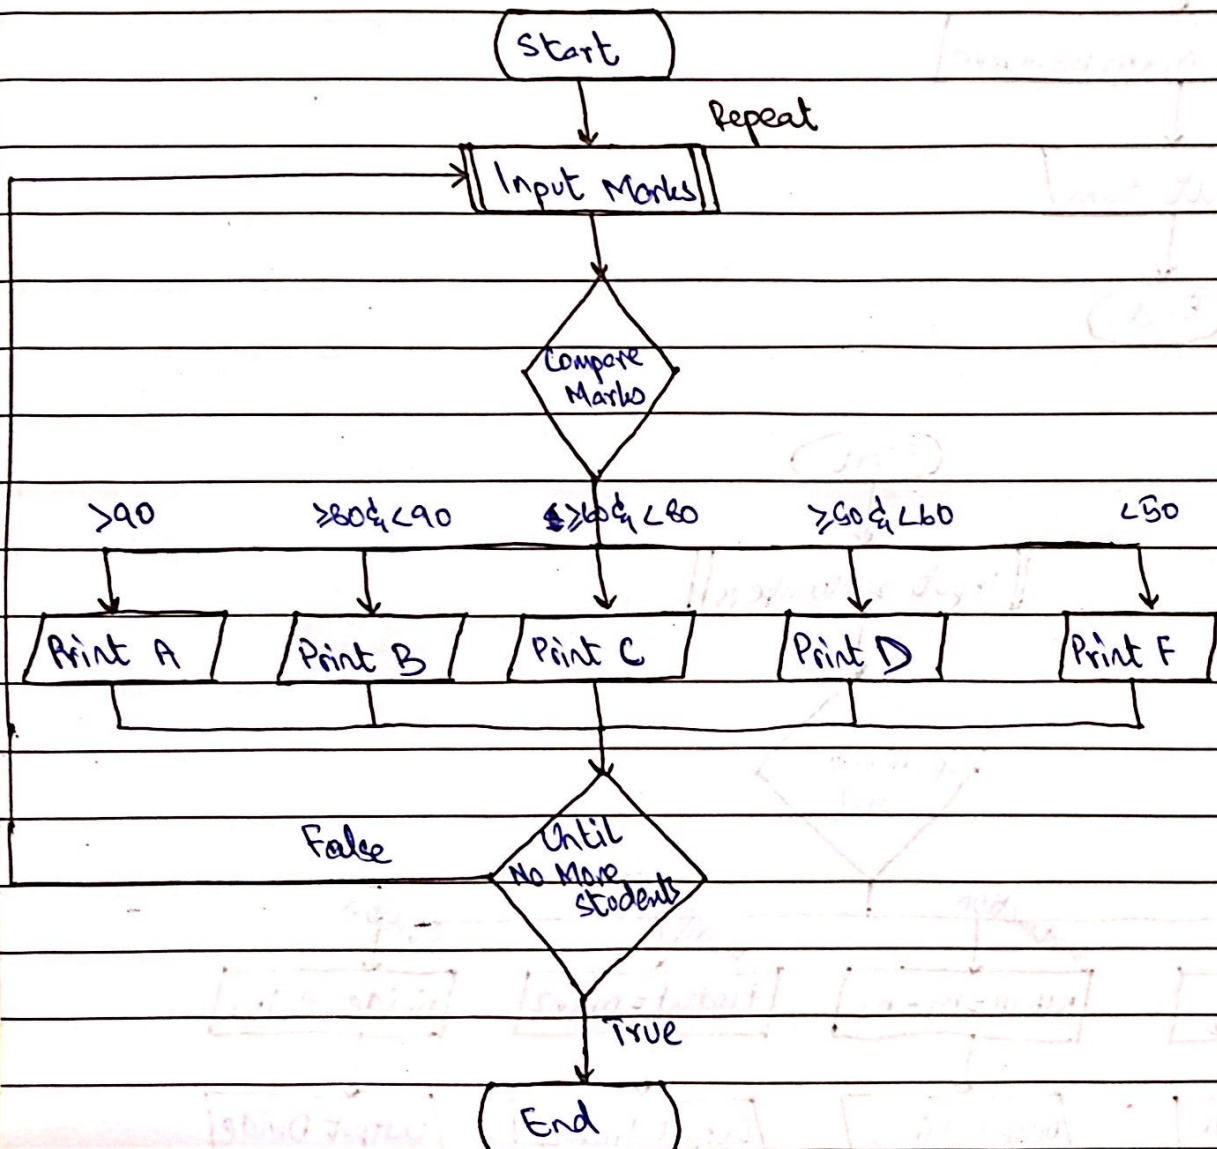 Start
Repeat
Input Marks
Compare
Marks
>90
≥80&<90
≥60&<80
≥50&<60
<50
Print A
Print B
Print C
Print D
Print F
False
Until
No More
students
True
End